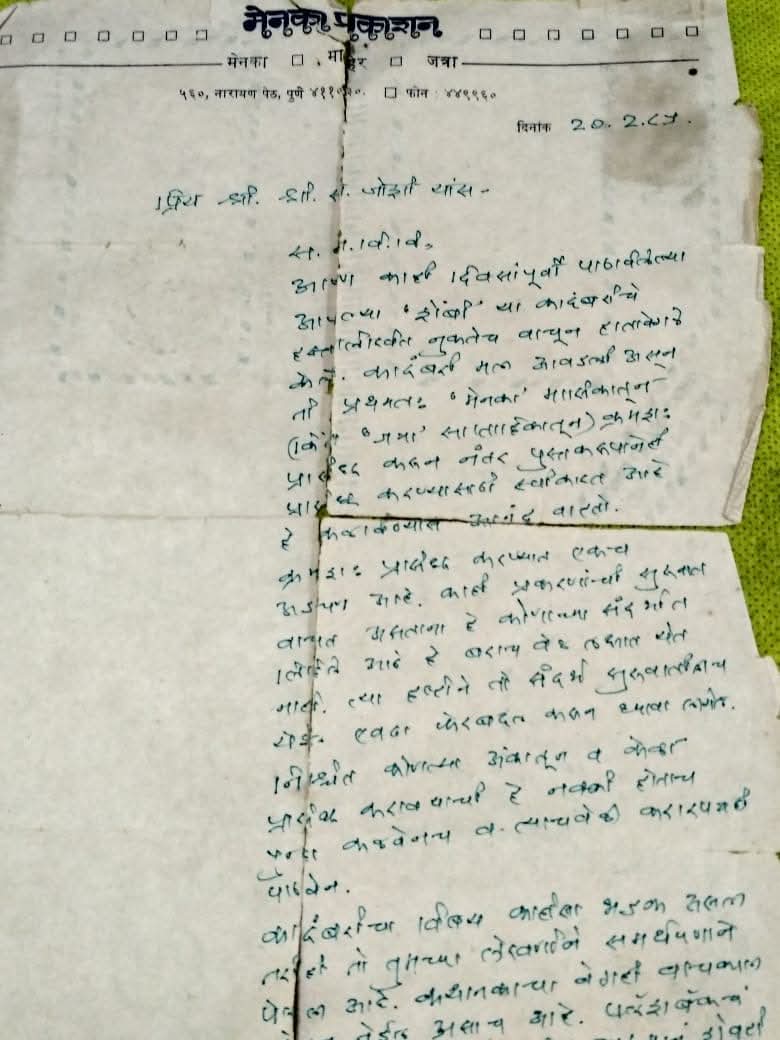 मेनका प्रकाशन
मेनका □ माहेर □ जत्रा
५६०, नारायण पेठ, पुणे ४११०३०. □ फोन : ४४९९६०
दिनांक 20.2.८५.
प्रिय श्री. श्री. सं. जोशी यांस -
स. न. वि. वि.
आपण काही दिवसांपूर्वी पाठविलेल्या
आपल्या 'शेंबी' या कादंबरीचे
हस्तलिखित नुकतेच वाचून हातावेगळे
केले. कादंबरी मला आवडली असून
ती प्रथमतः 'मेनका' मासिकातून
(किंवा 'जत्रा' साप्ताहिकातून) क्रमशः
प्रसिद्ध करून नंतर पुस्तकरूपानेही
प्रसिद्ध करण्यासाठी स्वीकारत आहे
हे कळविण्यास आनंद वाटतो.
क्रमशः प्रसिद्ध करण्यात एकच
अडचण आहे. काही प्रकरणांची सुरुवात
वाचत असताना हे कोणाच्या संदर्भात
लिहिले आहे हे बराच वेळ लक्षात येत
नाही. त्या दृष्टीने तो संदर्भ सुरुवातीलाच
येईल एवढा फेरबदल करून घ्यावा लागेल.
निश्चित कोणत्या अंकातून व केव्हा
प्रसिद्ध करावयाची हे नक्की होताच
पुन्हा कळवेनच व त्याचवेळी करारपत्रही
पाठवेन.
कादंबरीचा विषय काहीसा भडक असला
तरीही तो तुमच्या लेखणीने समर्थपणाने
पेलला आहे. कथानकाचा वेगही वाचकाला
नेईल असाच आहे. फ्लॅशबॅकचं